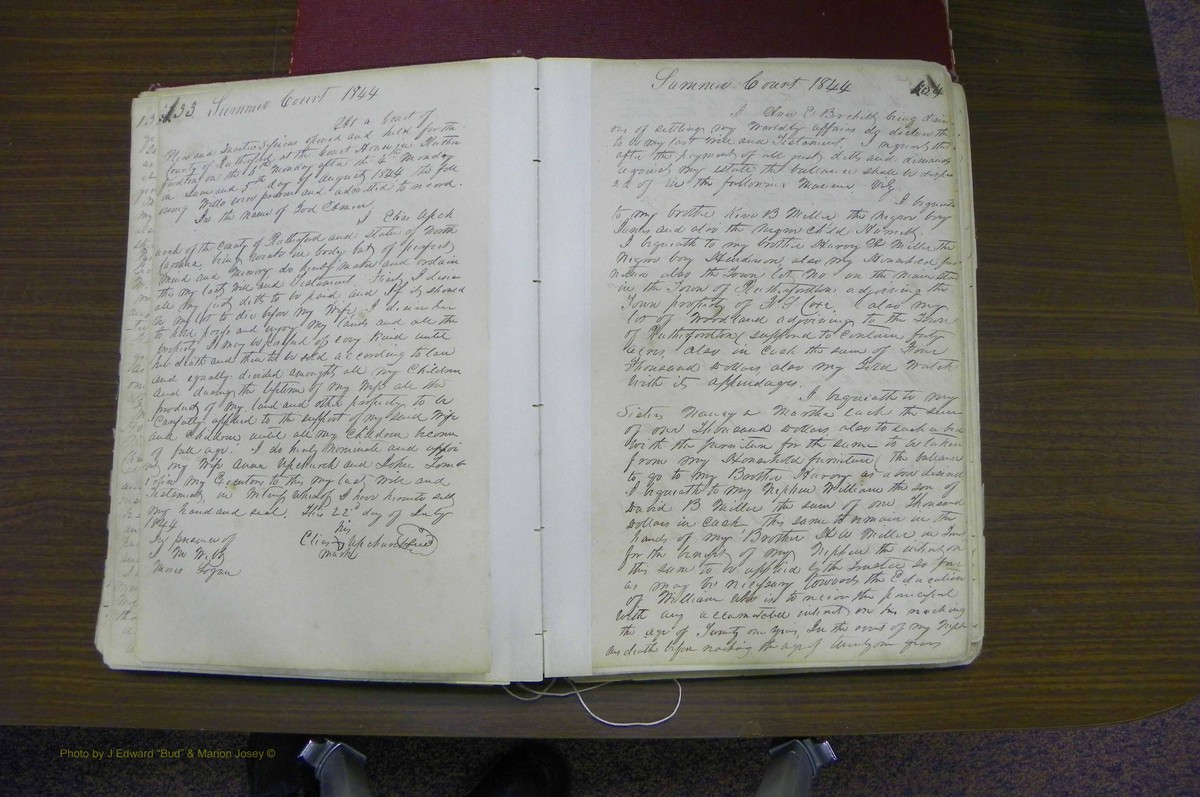 133 Summer Court 1844
At a Court of
Pleas and Quarter Sessions opened and held for the
County of Rutherford at the Court House in Ruther
fordton on the 5th Monday after the 4th Monday
in June and 5th day of August 1844 the foll
owing Wills were proven and admitted to record.
In the name of God Amen.
I Elias Upch
urch of the County of Rutherford and State of North
Carolina being weak in body but of perfect
mind and memory do hereby make and ordain
this my last will and Testament. Firstly I desire
all my just debts to be paid and if it should
be my lot to die before my Wife I desire her
to hold possess and enjoy my lands and all the
property I may be possessed of every kind until
her death and then to be sold according to law
and equally divided amongst all my Children
and during the lifetime of my Wife all the
products of my land and other property to be
carefully applied to the support of my said Wife
and Children until all my Children become
of full age. I do hereby nominate and appoi
nt my Wife Upchurch and John
my Executors to this my last will and
Testament in Witness whereof I have hereunto set
my hand and seal. This 22d day of July
1844
In presence of
his
Elias X Upchurch Seal
mark
Logan
Summer Court 1844
I Ann E Birchett being desir
ous of settling my worldly affairs do declare this
to be my last Will and Testament. I request that
after the payment of all just debts and demands
against my estate the balance shall be dispo
sed of in the following manner Viz
I bequeath
to my brother B Miller the Negro boy
James and also the negro child Harriet.
I bequeath to my brother Harvy W Miller the
Negro boy Henderson, also my Household fur
niture also the Town lot No on the main street
in the Town of Rutherfordton adjoining the
Town property of Coxe also my
lot of Wood land adjoining to the Town
of Rutherfordton (supposed to contain forty
acres, also in cash the sum of Four
Thousand dollars also my Gold Watch
with its appendages.
I bequeath to my
Sisters Nancy & Martha each the sum
of one thousand dollars also to each a bed
with the furniture for the same to be taken
from my Household furniture (the balance
to go to my Brother Harvy as above desired
I bequeath to my Nephew William the son of
David B Miller the sum of one Thousand
dollars in cash, this same to remain in the
hands of my Brother H W Miller in Trust
for the benefit of my Nephew the interest on
this sum to be applied by the trustee so far
as may be necessary towards the Education
of William who is to receive the principal
with any accumulated interest on his reaching
the age of Twenty one years, In the event of my Neph
ews death before reaching the age of twenty one years
Photo by J Edward "Bud" & Marion Josey ©